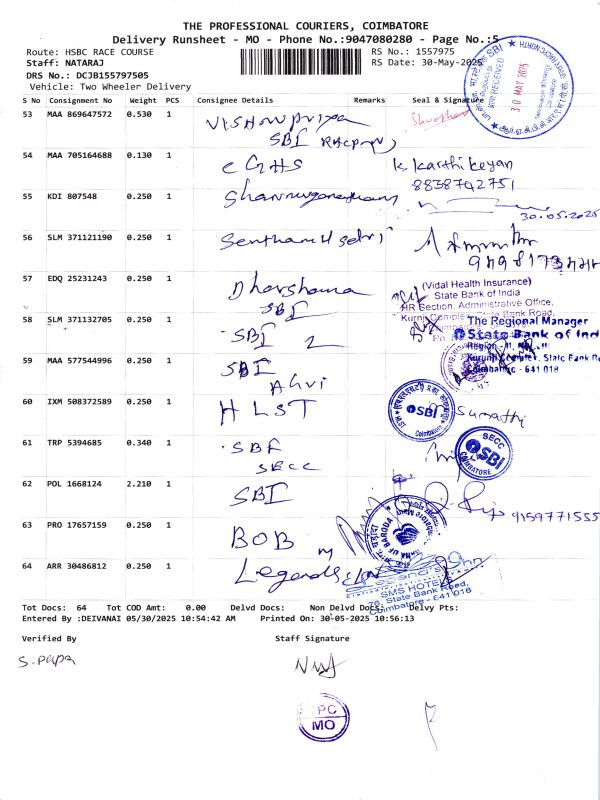 THE PROFESSIONAL COURIERS, COIMBATORE
Delivery Runsheet - MO - Phone No.:9047080280 - Page No.:5
Route: HSBC RACE COURSE
RS No.: 1557975
Staff: NATARAJ
RS Date: 30-May-2025
DRS No.: DCJB155797505
Vehicle: Two Wheeler Delivery
RECEIVED
30 MAY 2025
S No Consignment No Weight PCS Consignee Details Remarks Seal & Signature
53 MAA 869647572 0.530 1
SBI
54 MAA 705164688 0.130 1 CGHS K Karthikeyan
8838742751
55 KDI 807548 0.250 1
30.05.2025
56 SLM 371121190 0.250 1
57 EDQ 25231243 0.250 1 Dharshana
SBI
(Vidal Health Insurance)
State Bank of India
HR Section, Administrative Office,
State Bank Road,
58 SLM 371132705 0.250 1 SBI 2
The Regional Manager
State Bank of Ind
Coimbatore - 641 018
59 MAA 577544996 0.250 1 SBI
60 IXM 508372589 0.250 1 HLST
SBI
Coimbatore
Sumathi
61 TRP 5394685 0.340 1 SBI
SECC
SECC
SBI
COIMBATORE
62 POL 1668124 2.210 1 SBI
9159771555
63 PRO 17657159 0.250 1 BOB
BANK OF BARODA
64 ARR 30486812 0.250 1 Legends
SMS HOTELS
76, State Bank Road,
Coimbatore - 641 018
Tot Docs: 64 Tot COD Amt: 0.00 Delvd Docs: Non Delvd Docs: Delvy Pts:
Entered By :DEIVANAI 05/30/2025 10:54:42 AM Printed On: 30-05-2025 10:56:13
Verified By Staff Signature
S. Papa
TPC
MO